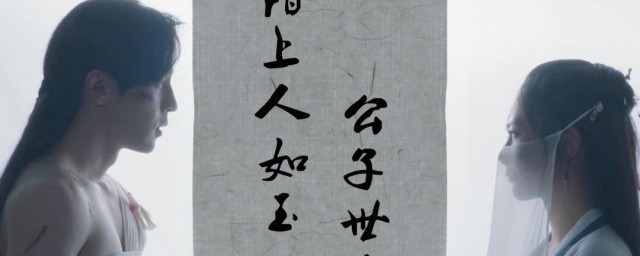 陌上人如玉
公子世